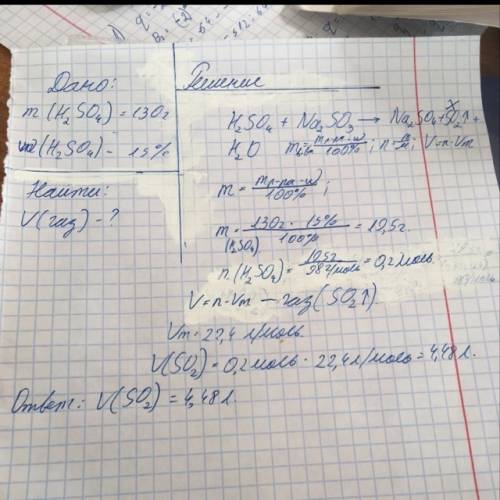 Дано:
m(H₂SO₄) = 130г
ω(H₂SO₄) - 15%
Найти:
V(газ) - ?
Решение
H₂SO₄ + Na₂SO₃ → Na₂SO₄ + SO₂↑ +
H₂O m в-ва = mр-ра·ω/100% ; n = m/M ; V=n·Vm
m = mр-ра·ω/100% ;
m(H₂SO₄) = 130г · 15%/100% = 19,5г.
n(H₂SO₄) = 19,5г/98г/моль = 0,2моль.
V=n·Vm – газ(SO₂↑).
Vm = 22,4 л/моль.
V(SO₂) = 0,2моль · 22,4л/моль = 4,48л.
Ответ: V(SO₂) = 4,48л.